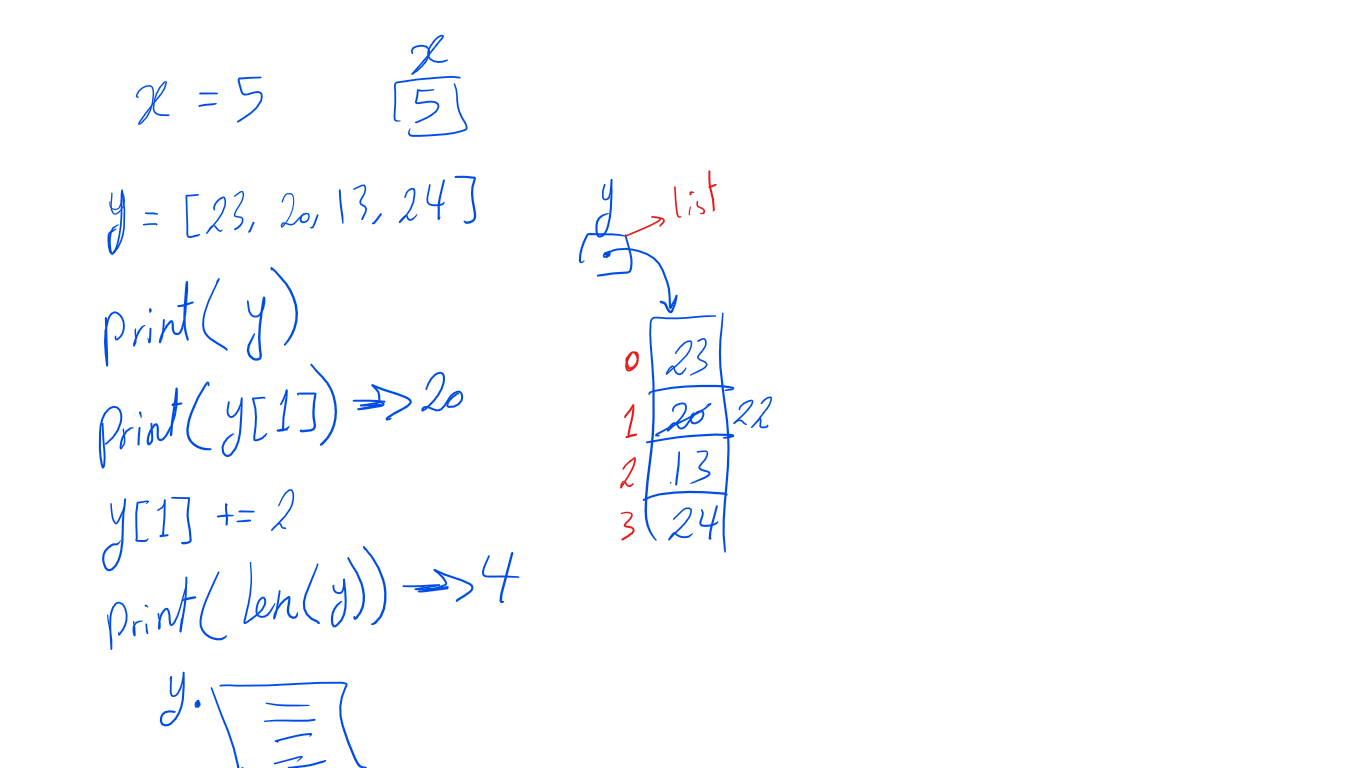 x = 5
x
5
y = [23, 20, 13, 24]
y
list
print(y)
print(y[1]) → 20
y[1] += 2
print(len(y)) → 4
y.
0 23
1 20 22
2 13
3 24